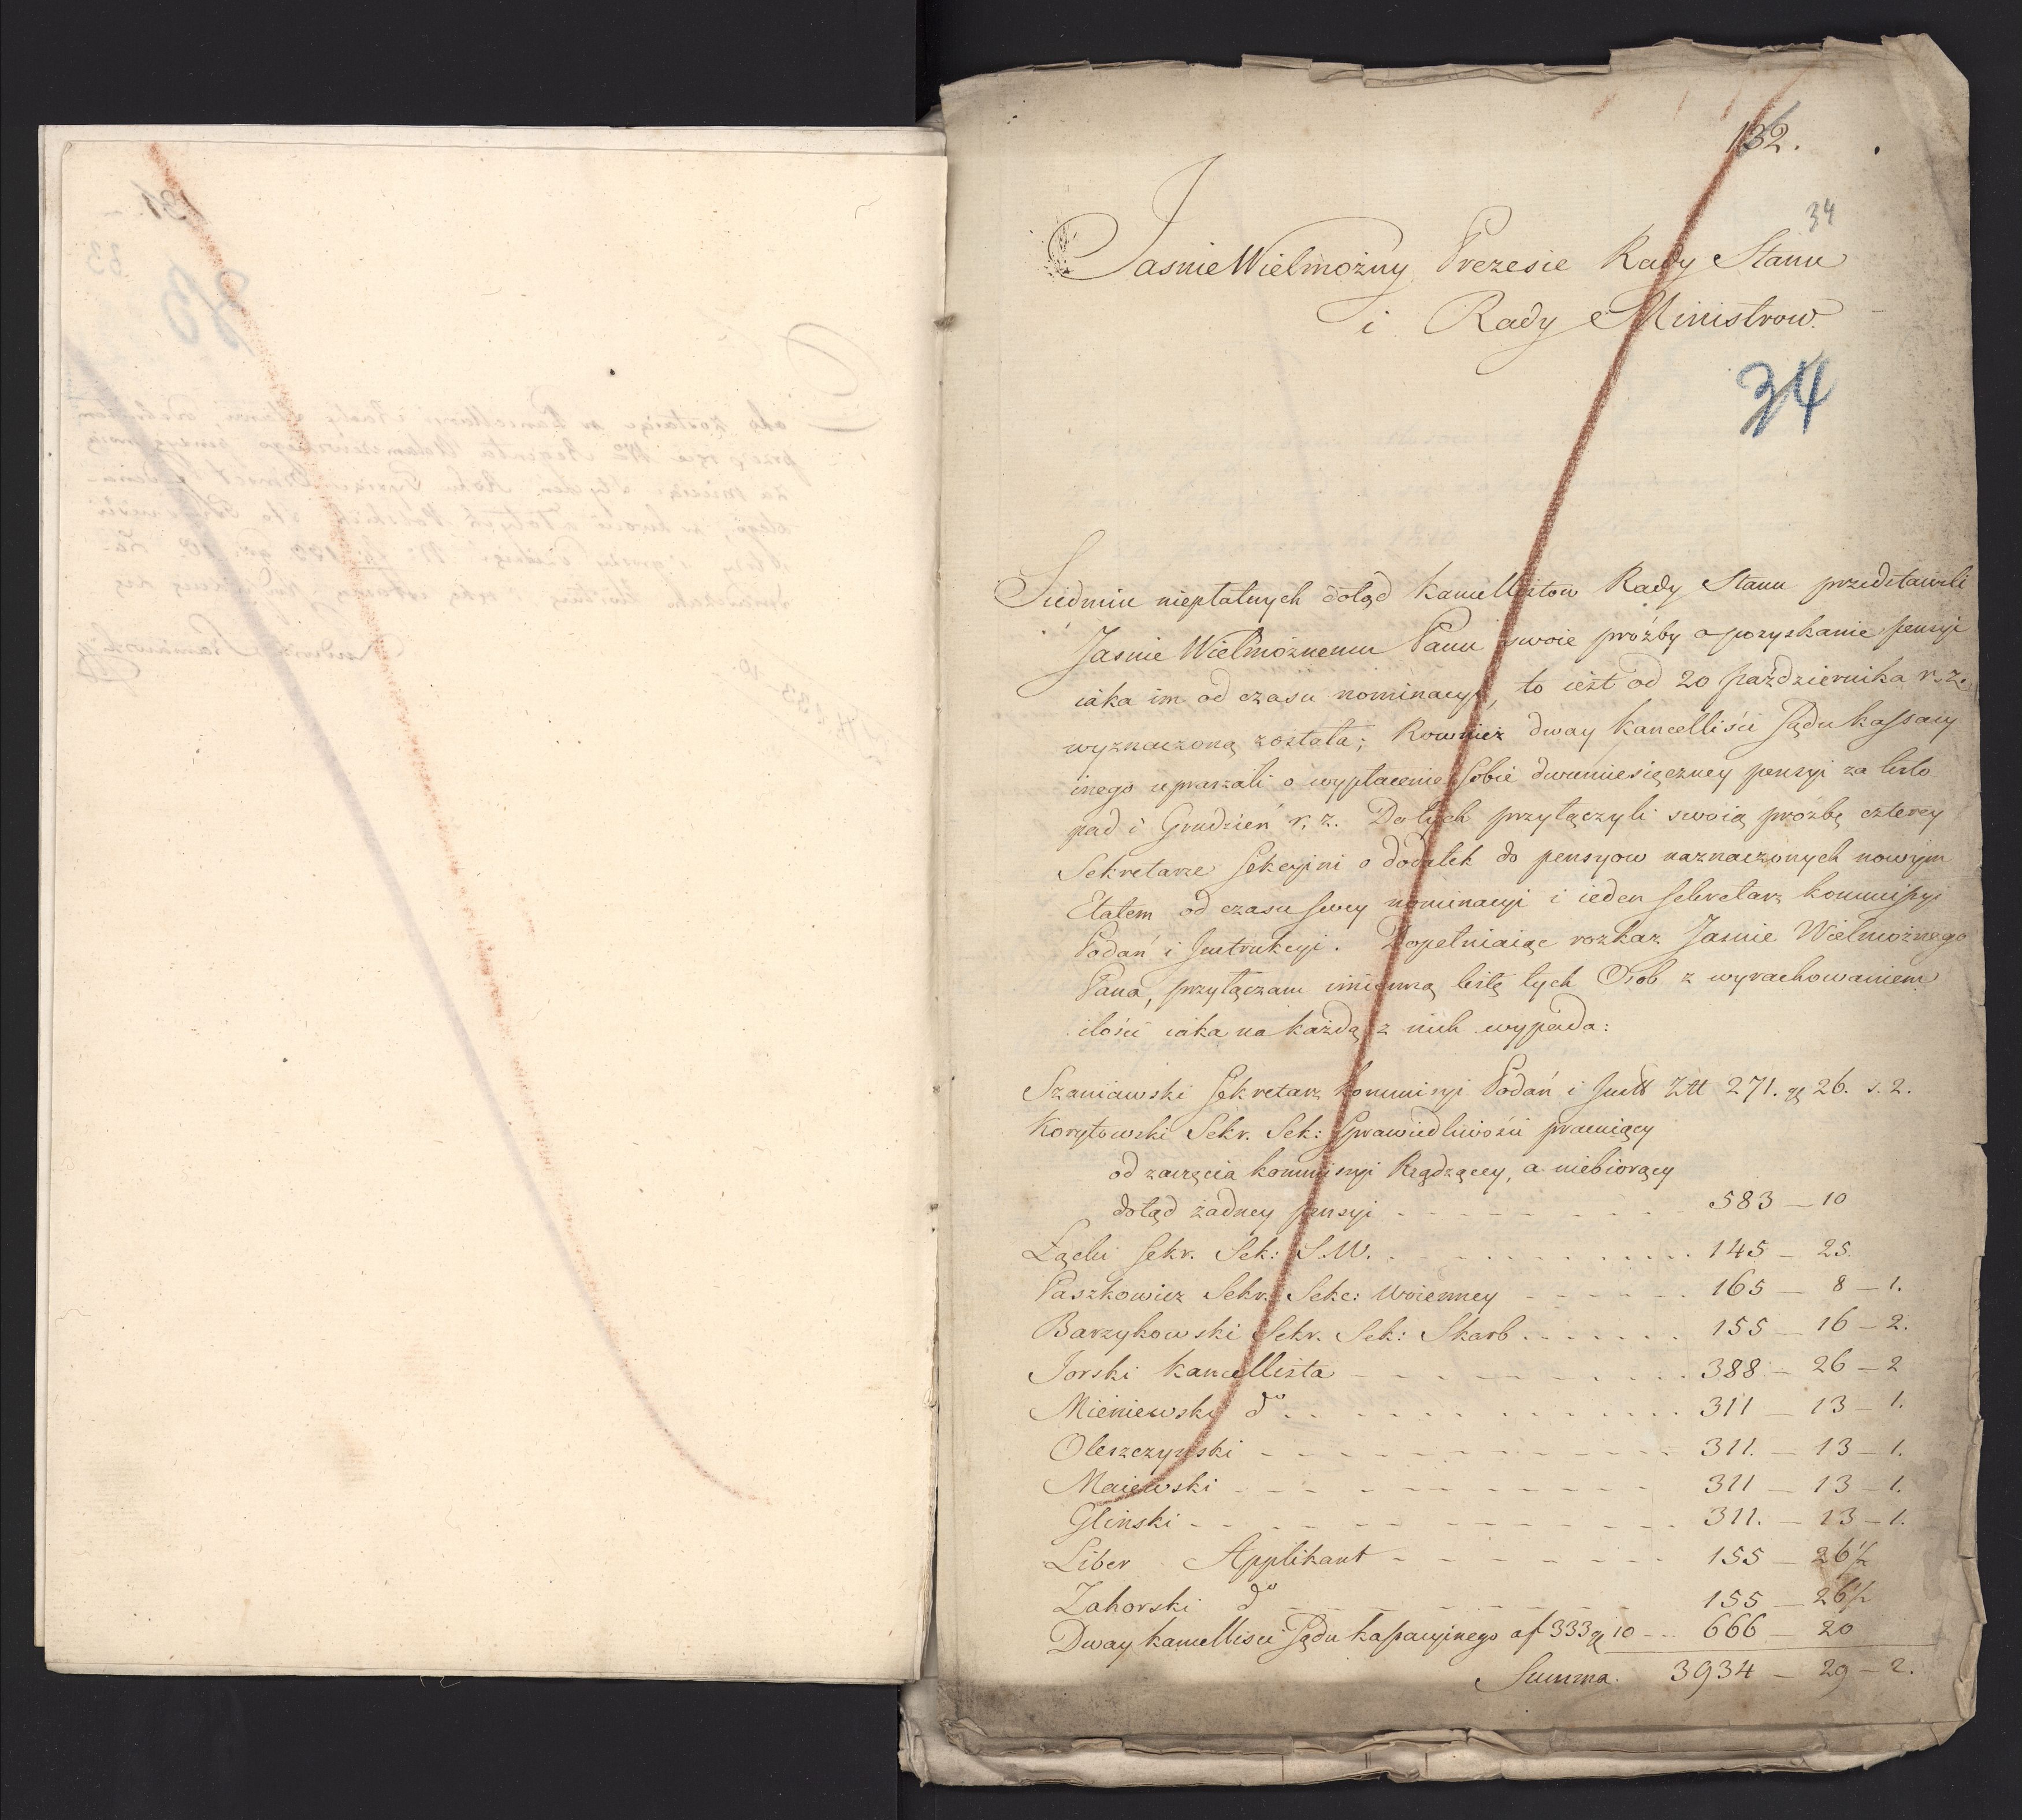 132.
34
Jasnie Wielmożny Prezesie Rady Stanu
i Rady Ministrow.
34
Siedmiu niepłatnych dotąd Kancellistow Rady Stanu przedstawili
Jasnie Wielmożnemu Panu swoie prożby o pozyskanie pensyi
iaka im od czasu nominacyi, to iest od 20 października r. z.
wyznaczoną została; Rownież dway Kancelliści Sądu Kassacy
inego upraszali o wypłacenie sobie dwumiesięczney pensyi za Listo
pad i Grudzień r. z. Do tych przyłączyli swoią prożbę czterey
Sekretarze Sekcyini o dodatek do pensyow naznaczonych nowym
Etatem od czasu swey nominacyi i ieden sekretarz Kommissyi
Podań i Instrukcyi. Dopełniaiąc rozkaz Jasnie Wielmożnego
Pana, przyłączam imienną listę tych Osob z wyrachowaniem
ilości iaka na każdą z nich wypada:
Szaniawski Sekretarz Kommissyi Podań i Instr Złł 271. gr 26. s. 2.
Korytowski Sekr. Sek: Sprawiedliwości pracuiący
od zaczęcia Kommissyi Rządzącey, a niebiorący
dotąd żadney pensyi - - - 583 - 10
Łącki Sekr. Sek: S. W. - - - 145 - 25.
Paszkowicz Sekr. Sekc: Woienney - - - 165 - 8 - 1.
Barzykowski Sekr. Sek: Skarb. - - - 155 - 16 - 2.
Jorski Kancellista - - - 388 - 26 - 2
Mieniewski do - - - 311 - 13 - 1.
Oleszczynski - - - 311. - 13 - 1.
Maiewski - - - 311 - 13 - 1.
Glinski - - - 311. - 13 - 1.
Liber Applikant - - - 155 - 26 1/2
Zahorski do - - - 155 - 26 1/2
Dway Kancellisci Sądu Kassacyinego af 333 gr 10 - - - 666 - 20
Summa. 3934 - 29 - 2.